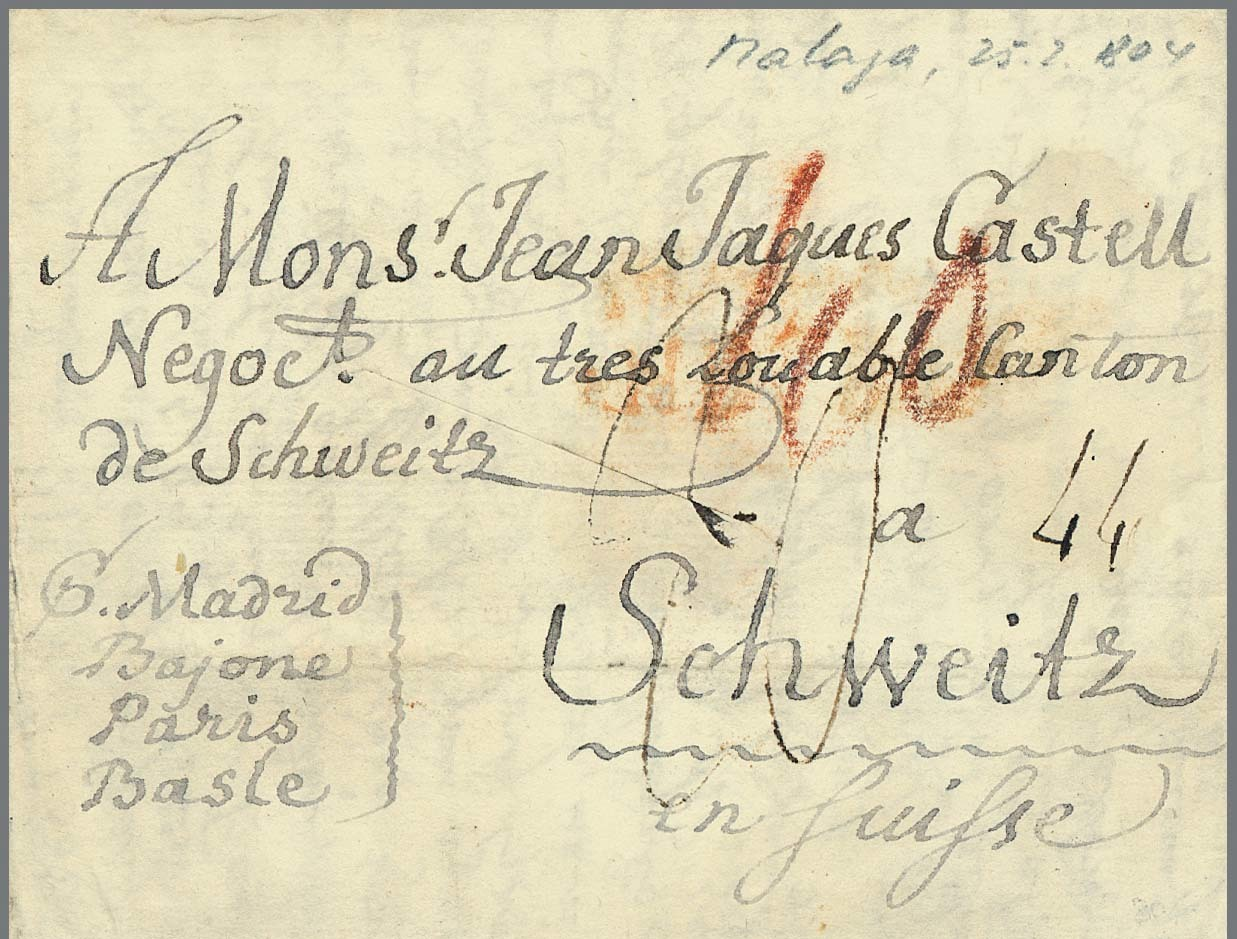 Malaga, 25.2.804
A Monsr. Jean Jaques Castell
Negoct. au tres Louable Canton
de Schweitz
40
a 44
Schweitz
en Suisse
p. Madrid
Bajone
Paris
Basle